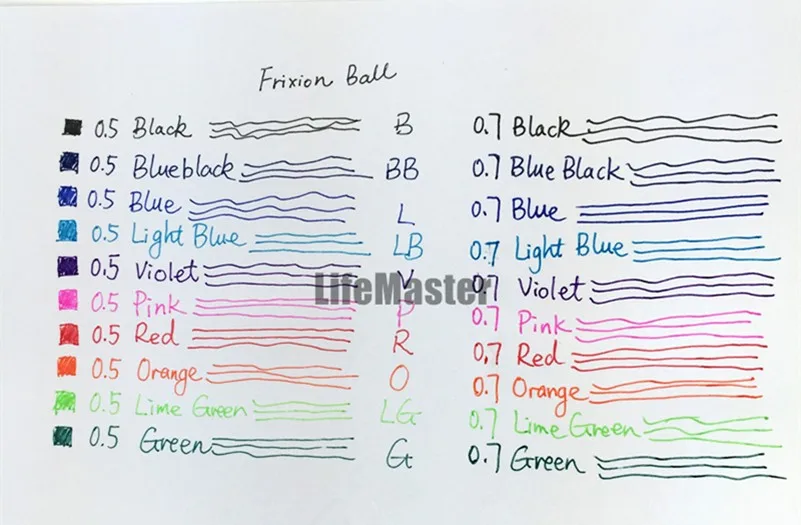 Frixion Ball
0.5 Black B 0.7 Black
0.5 Blueblack BB 0.7 Blue Black
0.5 Blue L 0.7 Blue
0.5 Light Blue LB 0.7 Light Blue
0.5 Violet V 0.7 Violet
LifeMaster
0.5 Pink P 0.7 Pink
0.5 Red R 0.7 Red
0.5 Orange O 0.7 Orange
0.5 Lime Green LG 0.7 Lime Green
0.5 Green G 0.7 Green